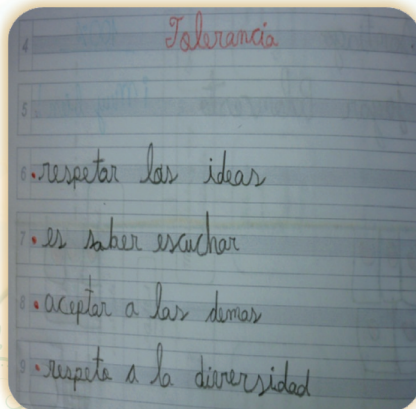 4 Tolerancia
5
6 • respetar las ideas
7 • es saber escuchar
8 • aceptar a las demas
9 • respeto a la diversidad